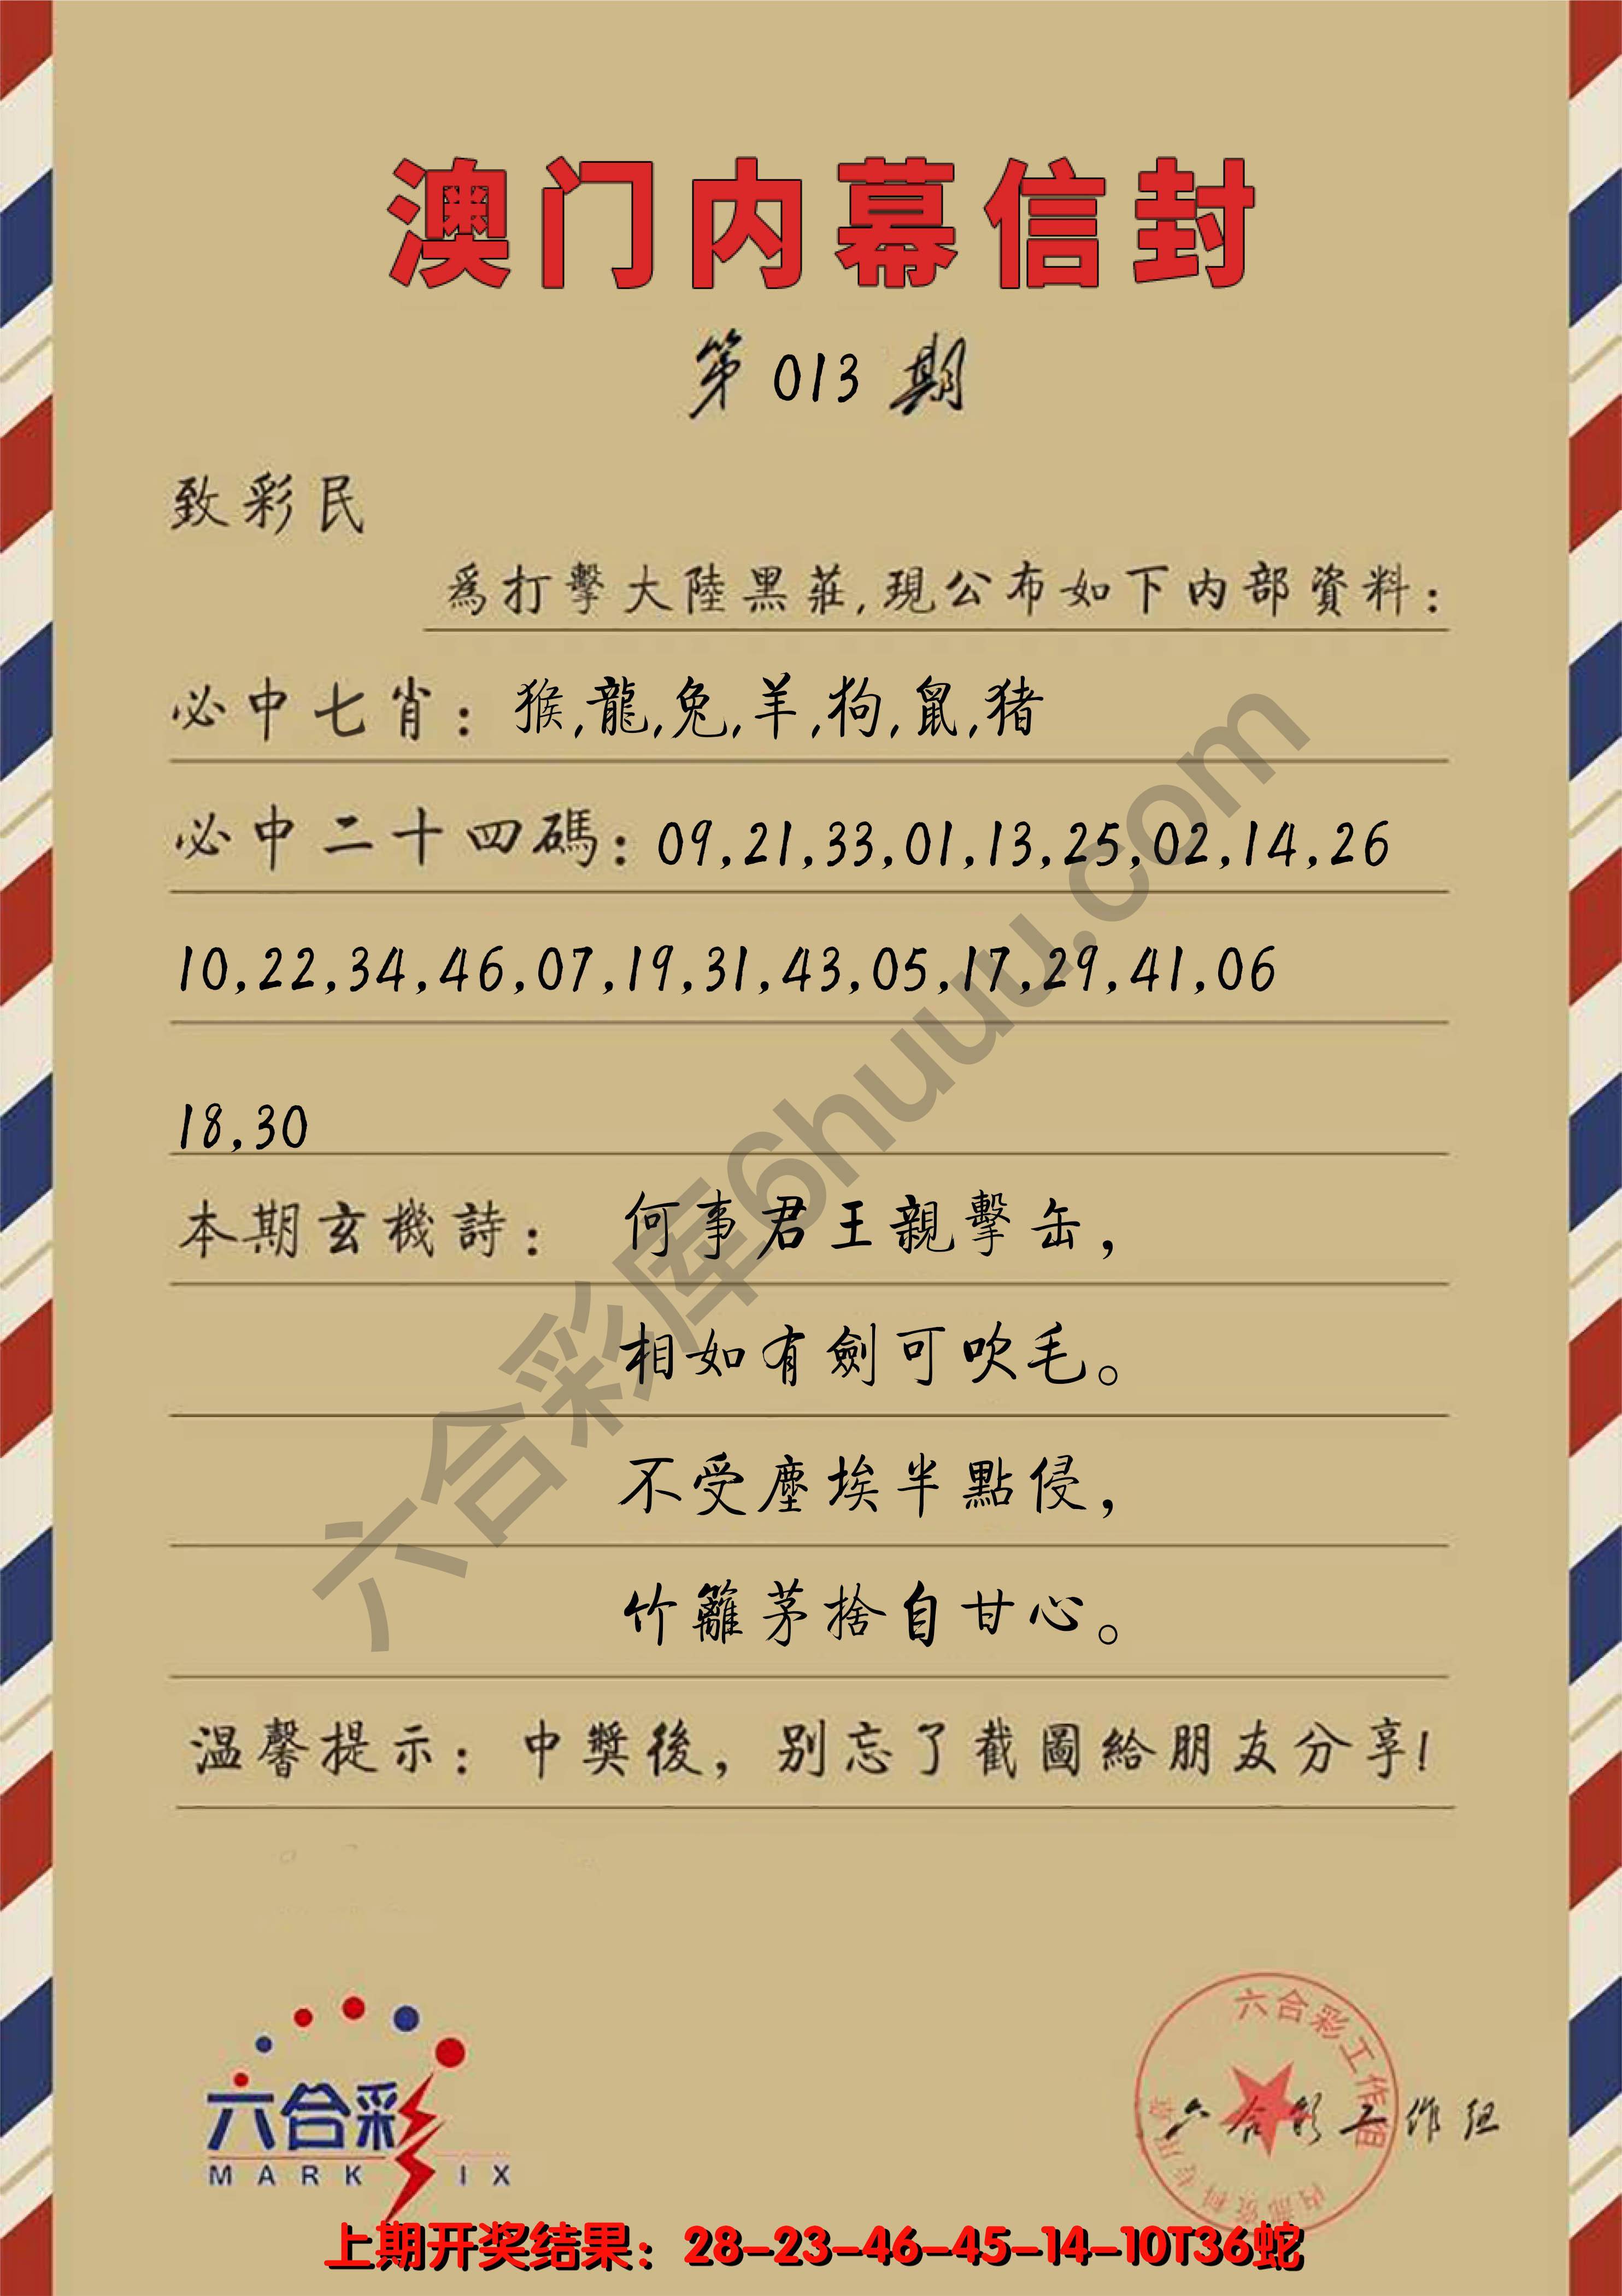 澳门内幕信封
第 013 期
致彩民
爲打擊大陸黑莊,現公布如下内部資料:
必中七肖: 猴,龍,兔,羊,狗,鼠,猪
必中二十四碼: 09,21,33,01,13,25,02,14,26
10,22,34,46,07,19,31,43,05,17,29,41,06
18,30
本期玄機詩: 何事君王親擊缶,
相如有劍可吹毛。
不受塵埃半點侵,
竹籬茅捨自甘心。
温馨提示: 中獎後, 别忘了截圖給朋友分享!
六合彩库6huuu.com
六合彩
MARK SIX
六合彩工作组
内部资料专用章
六合彩工作组
上期开奖结果: 28-23-46-45-14-10T36蛇